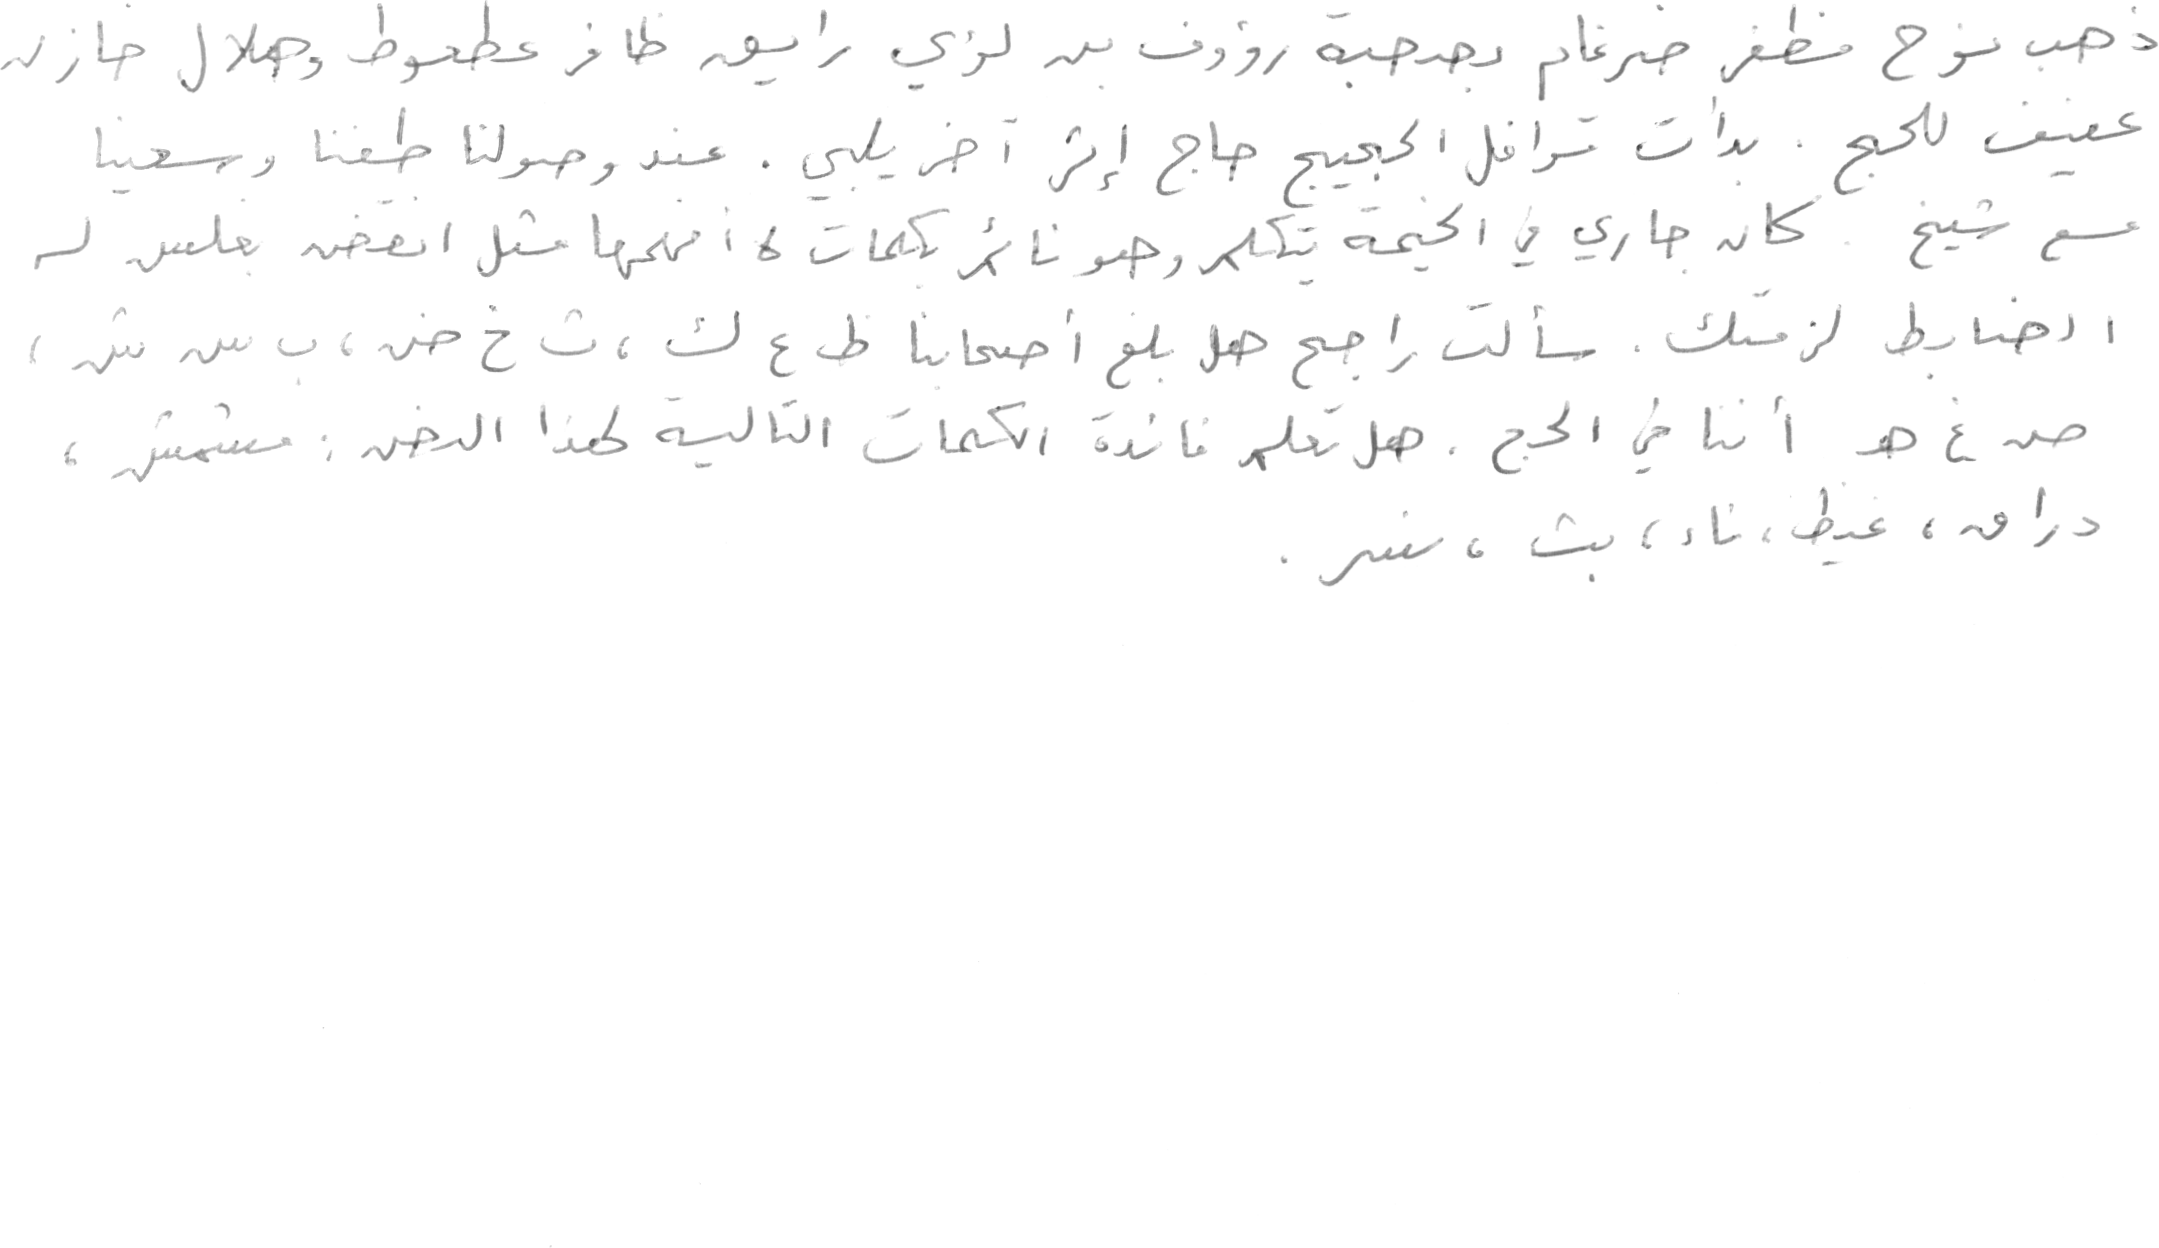 ذهب نوح مظفر ضرغام بصحبة رؤوف بن لؤي رايق ظافر عطعوط وهلال خازن
عفيف للحج . بدأت قوافل الحجيج حاج إثر آخر يلبي . عند وصولنا طفنا وسعينا
مع شيخ . كان جاري في الخيمة يتكلم وهو نائم بكلمات لا أفهمها مثل انقض بغلس لد
الضابط لزمتك . سألت راجح هل بلغ أصحابنا ظ ع ك ، ث خ ض ، ب س ش ،
ص غ هـ أننا في الحج . هل تعلم فائدة الكلمات التالية لهذا الدخن : مشمش ،
دراق ، غيظ ، ناء ، بث ، نسر .